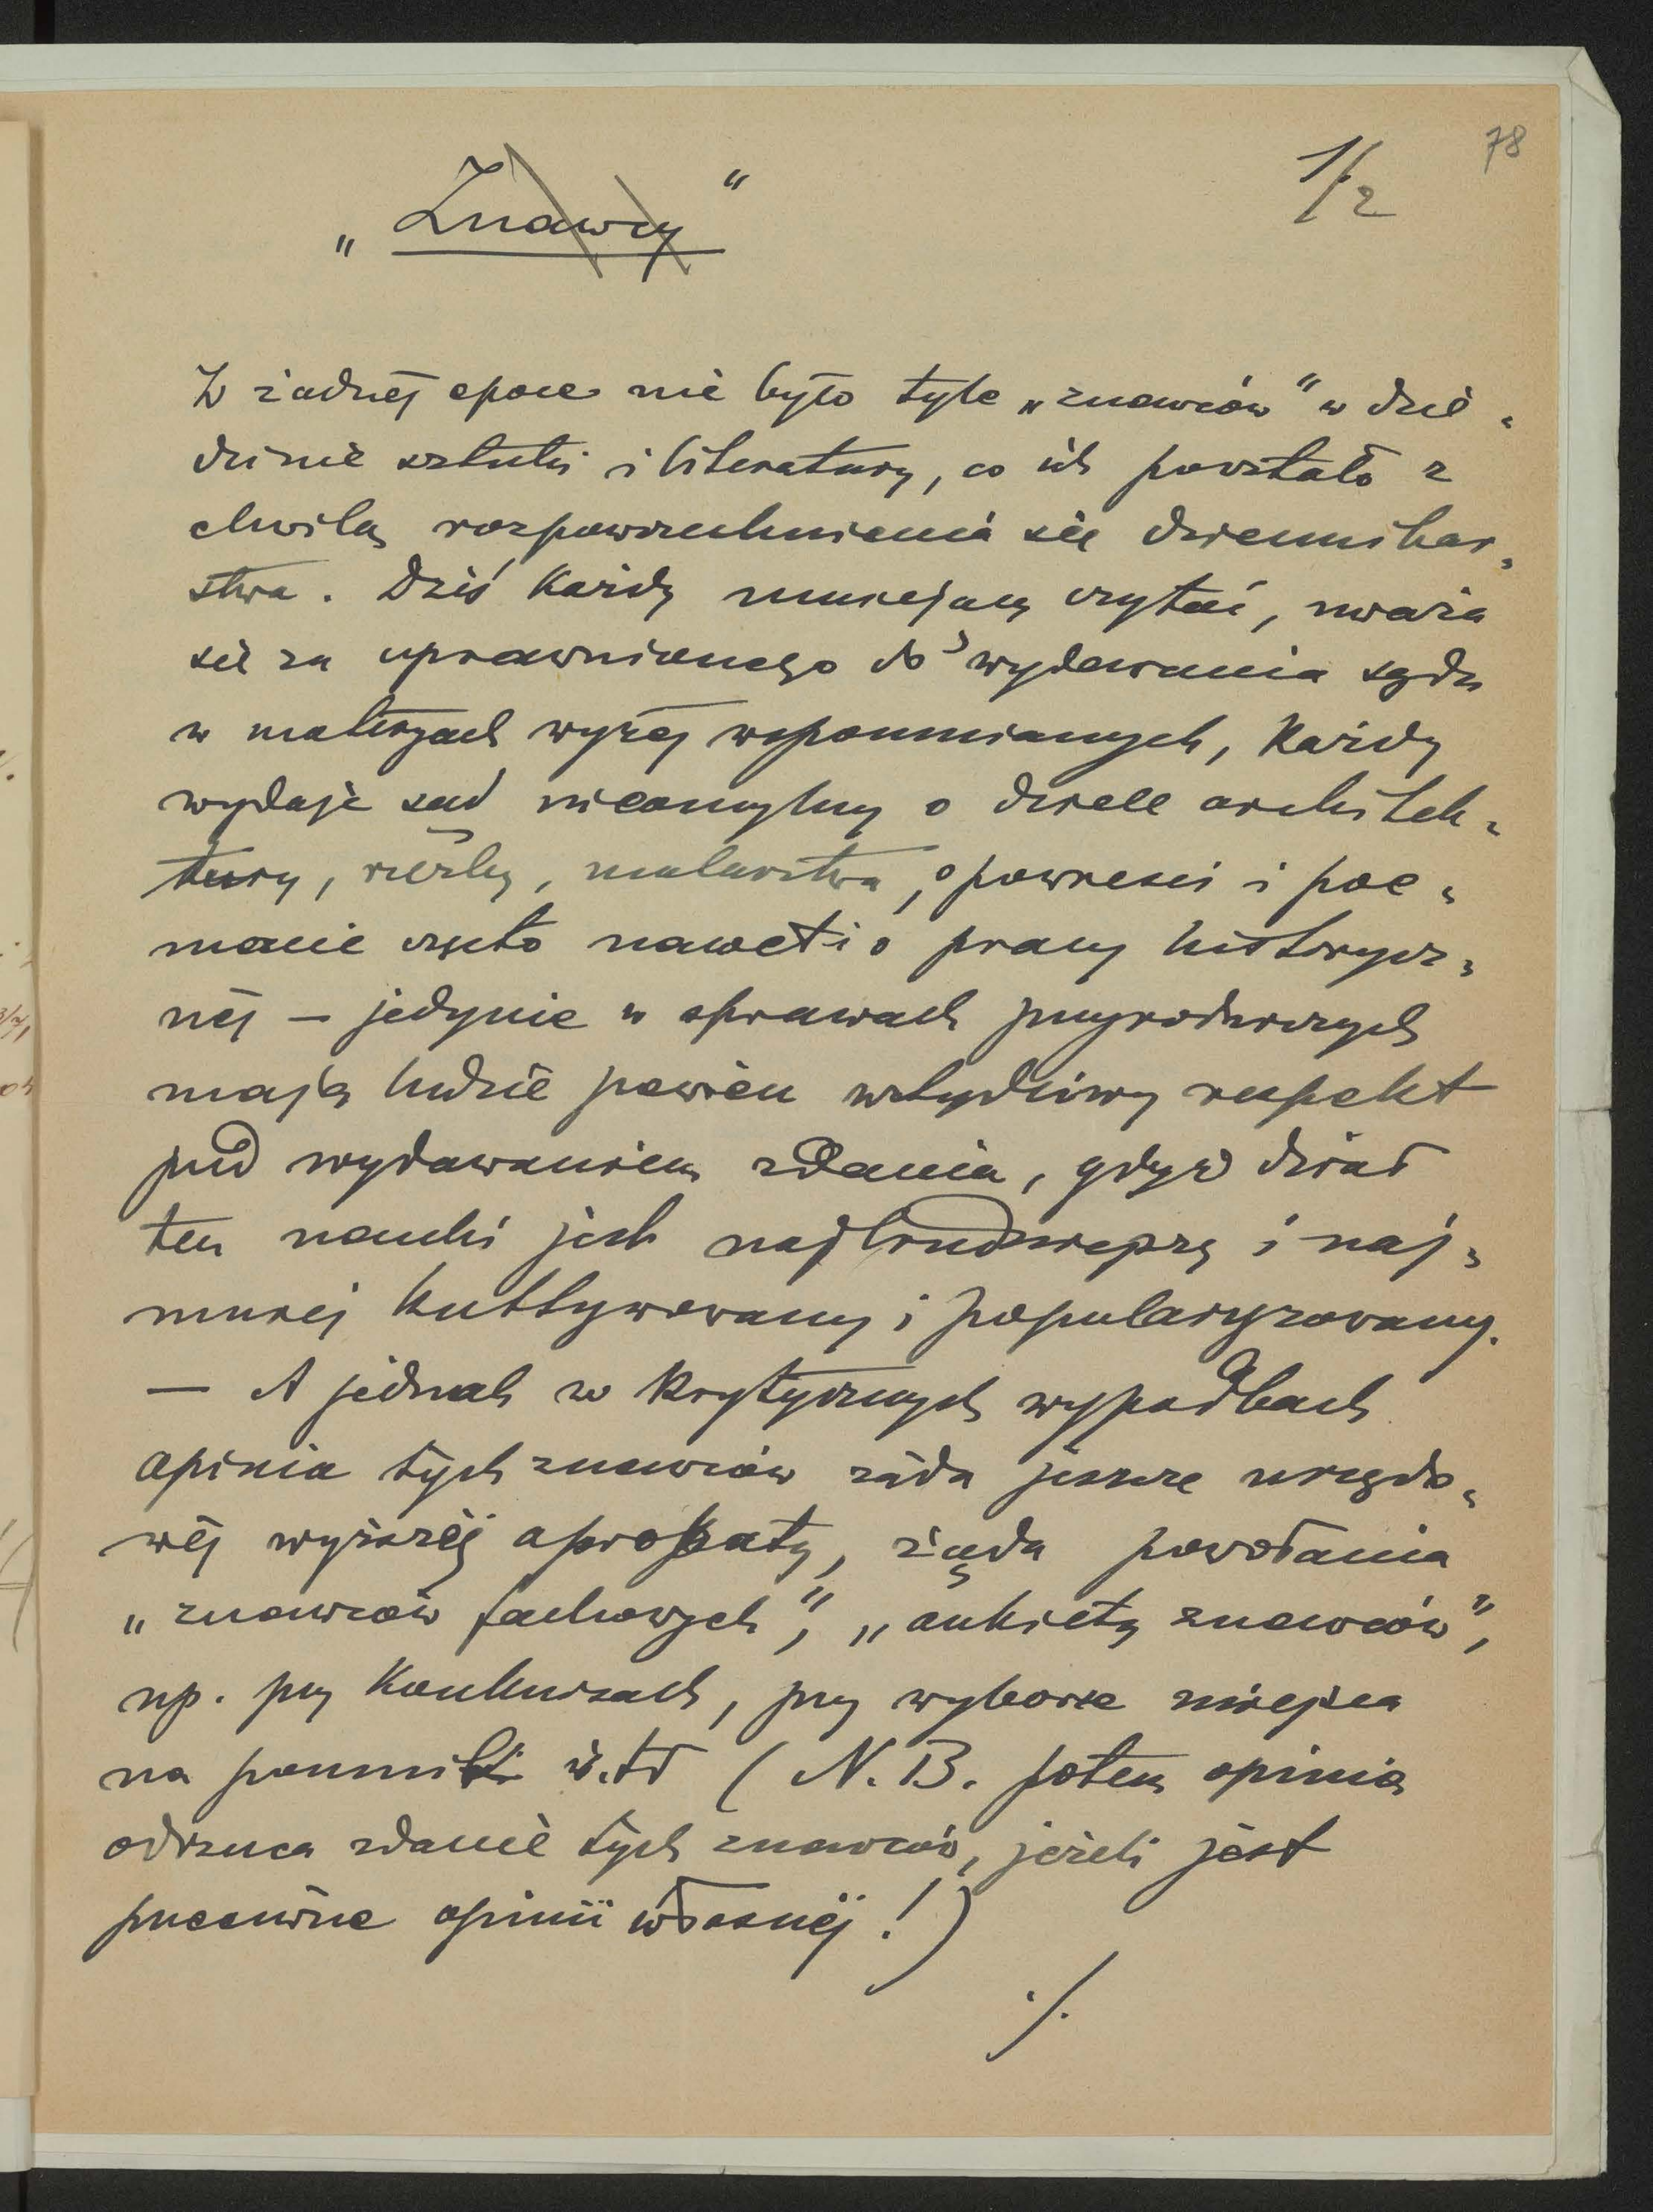 78
1/2
„Znawcy“
W żadnéj epoce nie było tyle „znawców“ w dzie-
dzinie sztuki i literatury, co ich powstało z
chwilą rozpowszechnienia się dziennikar-
stwa. Dziś każdy umiejący czytać, uważa
się za uprawnionego do wydawania sądu
w materyach wyżéj wspomnianych, każdy
wydaje sąd nieomylny o dziele architek-
tury, rzeźby, malarstwa, o powieści i poe-
macie często nawet i o pracy historycz-
néj — jedynie w sprawach przyrodniczych
mają ludzie pewien wstydliwy respekt
przed wydawaniem zdania, gdyż dział
ten nauki jest najtrudniejszy i naj-
mniej kultywowany i popularyzowany.
— A jednak w krytycznych wypadkach
opinia tych znawców żąda jeszcze urzędo-
wéj wyższéj aprobaty, żąda powołania
„znawców fachowych“, „ankiety znawców“,
np. przy konkursach, przy wyborze miejsca
na pomniki i.t.d (N.B. potem opinia
odrzuca zdanie tych znawców, jeżeli jest
przeciwne opinii własnéj!)
./.